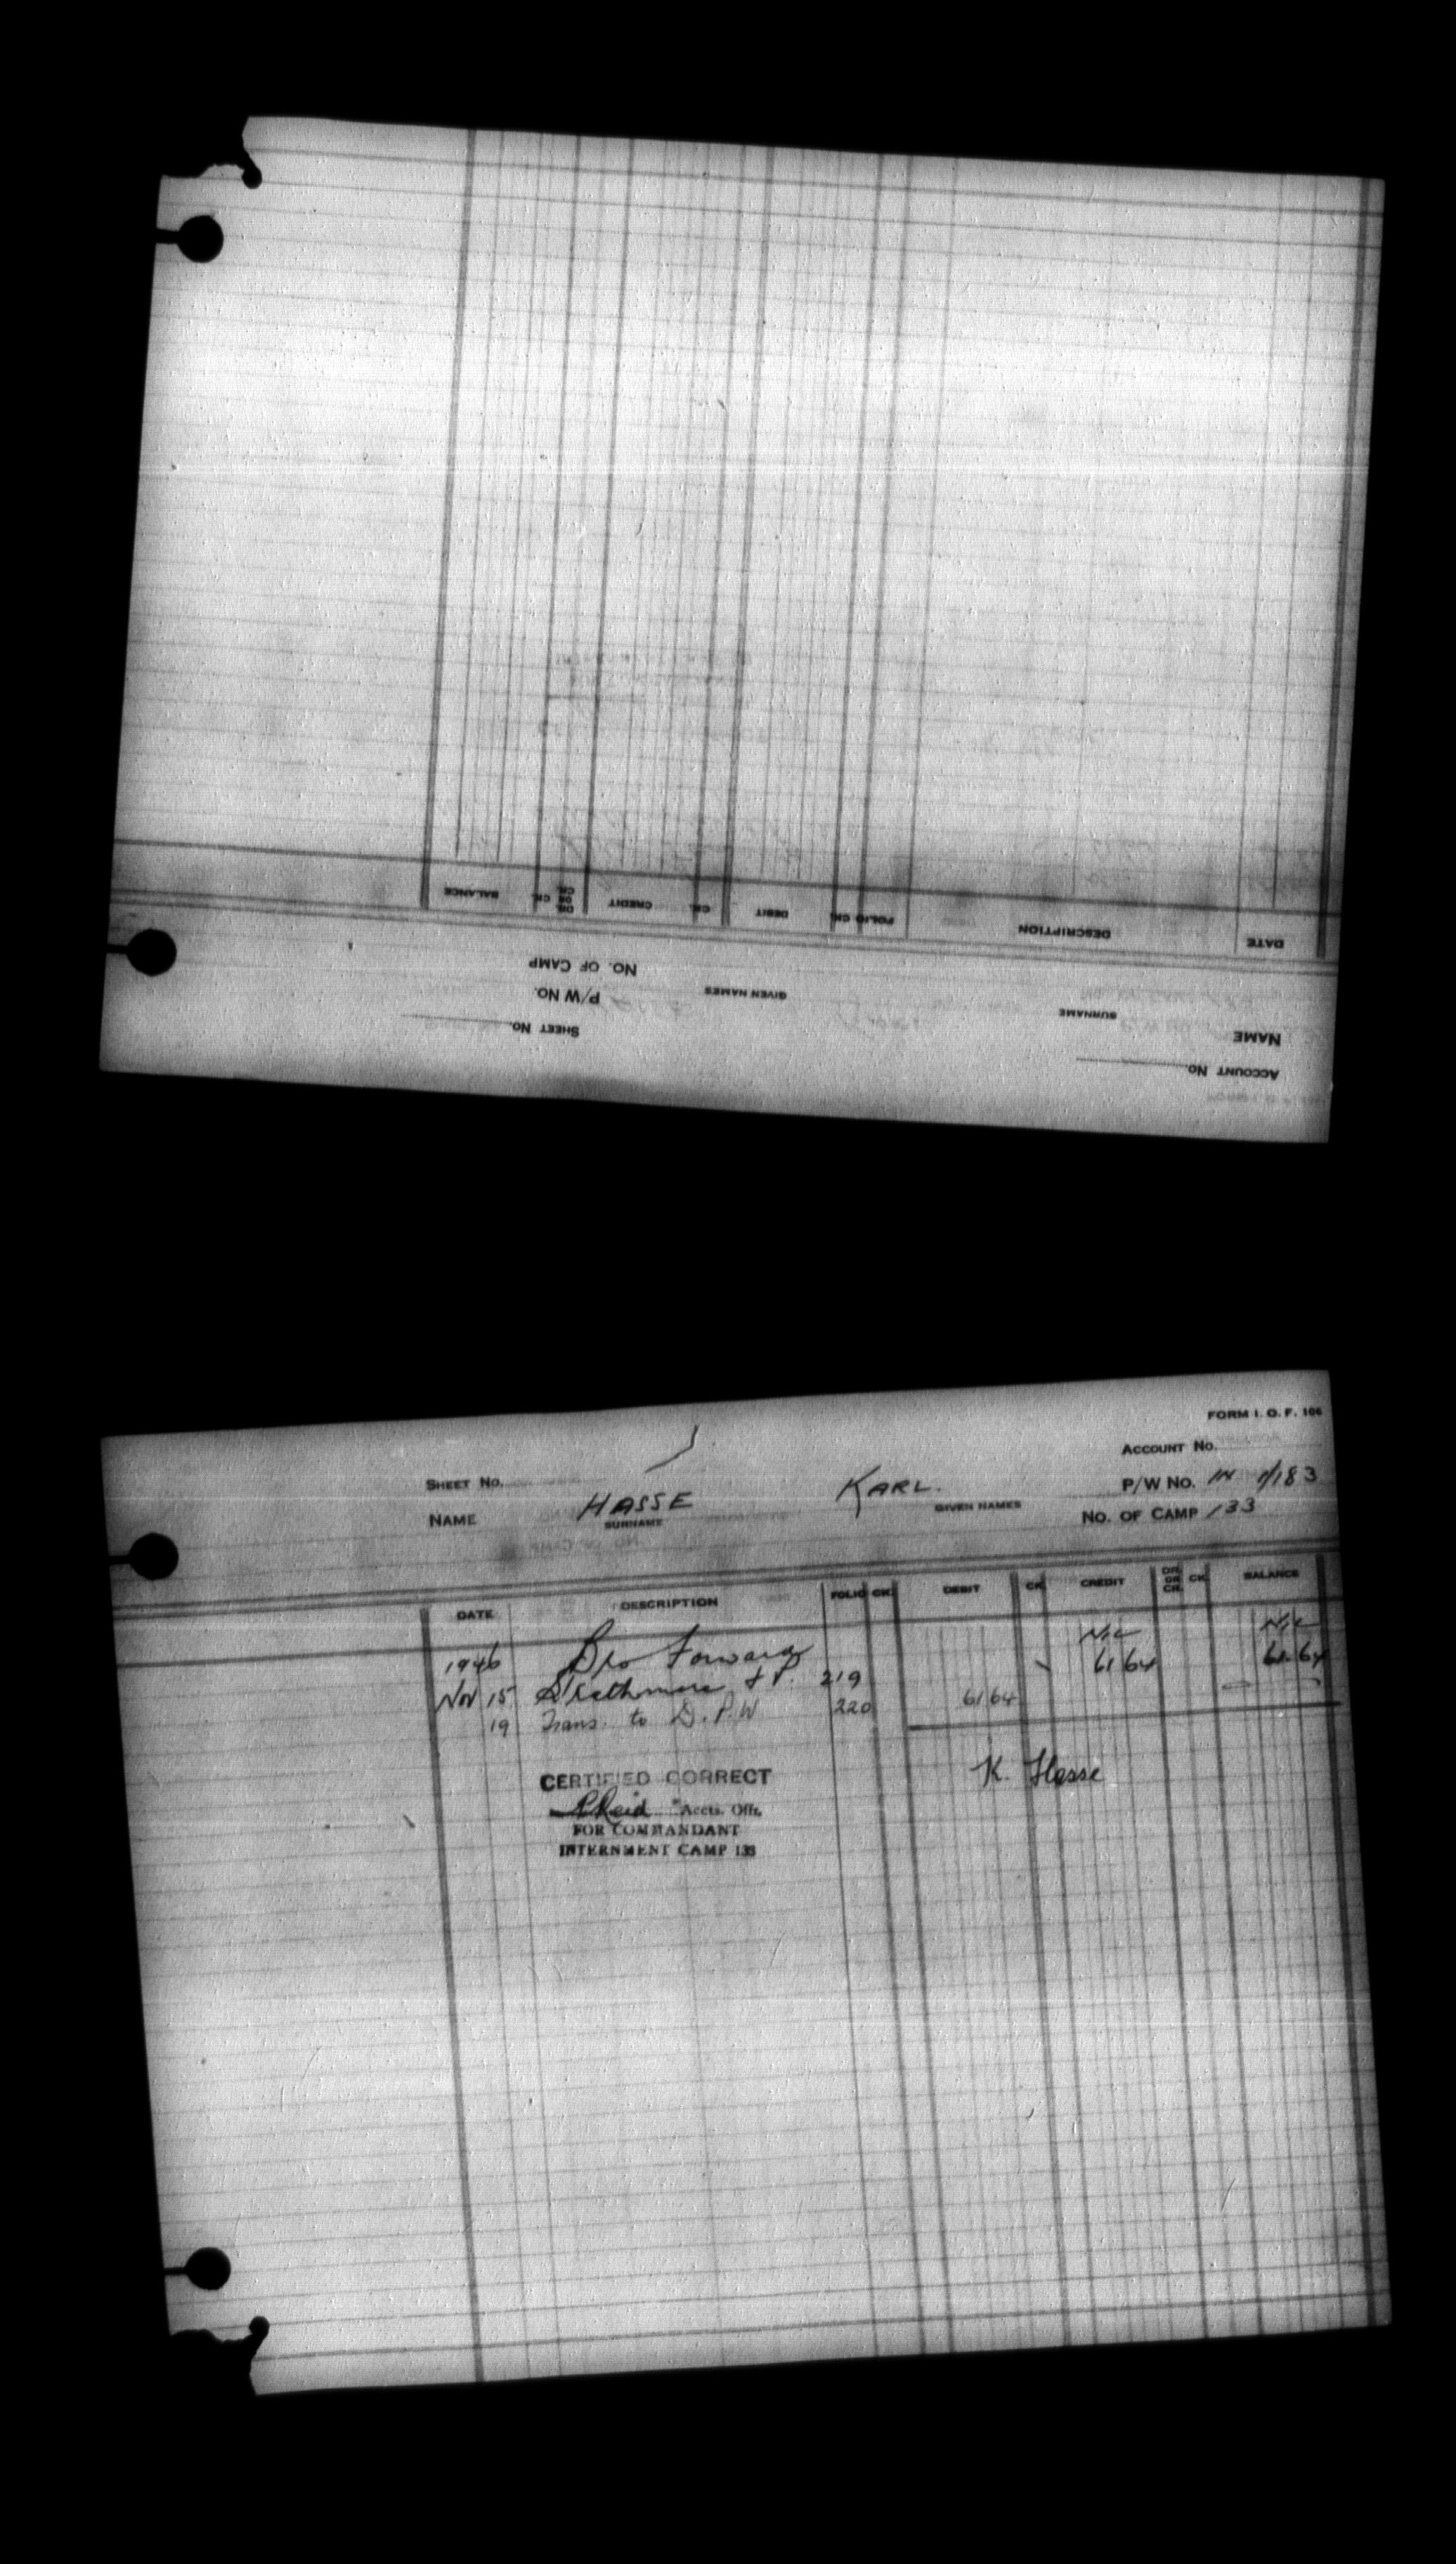 ACCOUNT No.
SHEET No.
NAME
SURNAME
GIVEN NAMES
P/W No.
NO. OF CAMP
DATE DESCRIPTION FOLIO CK. DEBIT CK. CREDIT DR. OR CR. CK. BALANCE
FORM I. O. F. 106
ACCOUNT No.
SHEET No.
P/W No. 1183
NAME HASSE KARL.
SURNAME GIVEN NAMES
No. OF CAMP 133
DATE DESCRIPTION FOLIO CK. DEBIT CK. CREDIT DR. OR CR. CK. BALANCE
1946 Bro Forward Nil Nil
Nov 15 Strathmore 219 61 64 61 64
19 Trans. to D.P.W 220 61 64
CERTIFIED CORRECT
K. Hasse
Reid Accts. Offr.
FOR COMMANDANT
INTERNMENT CAMP 133